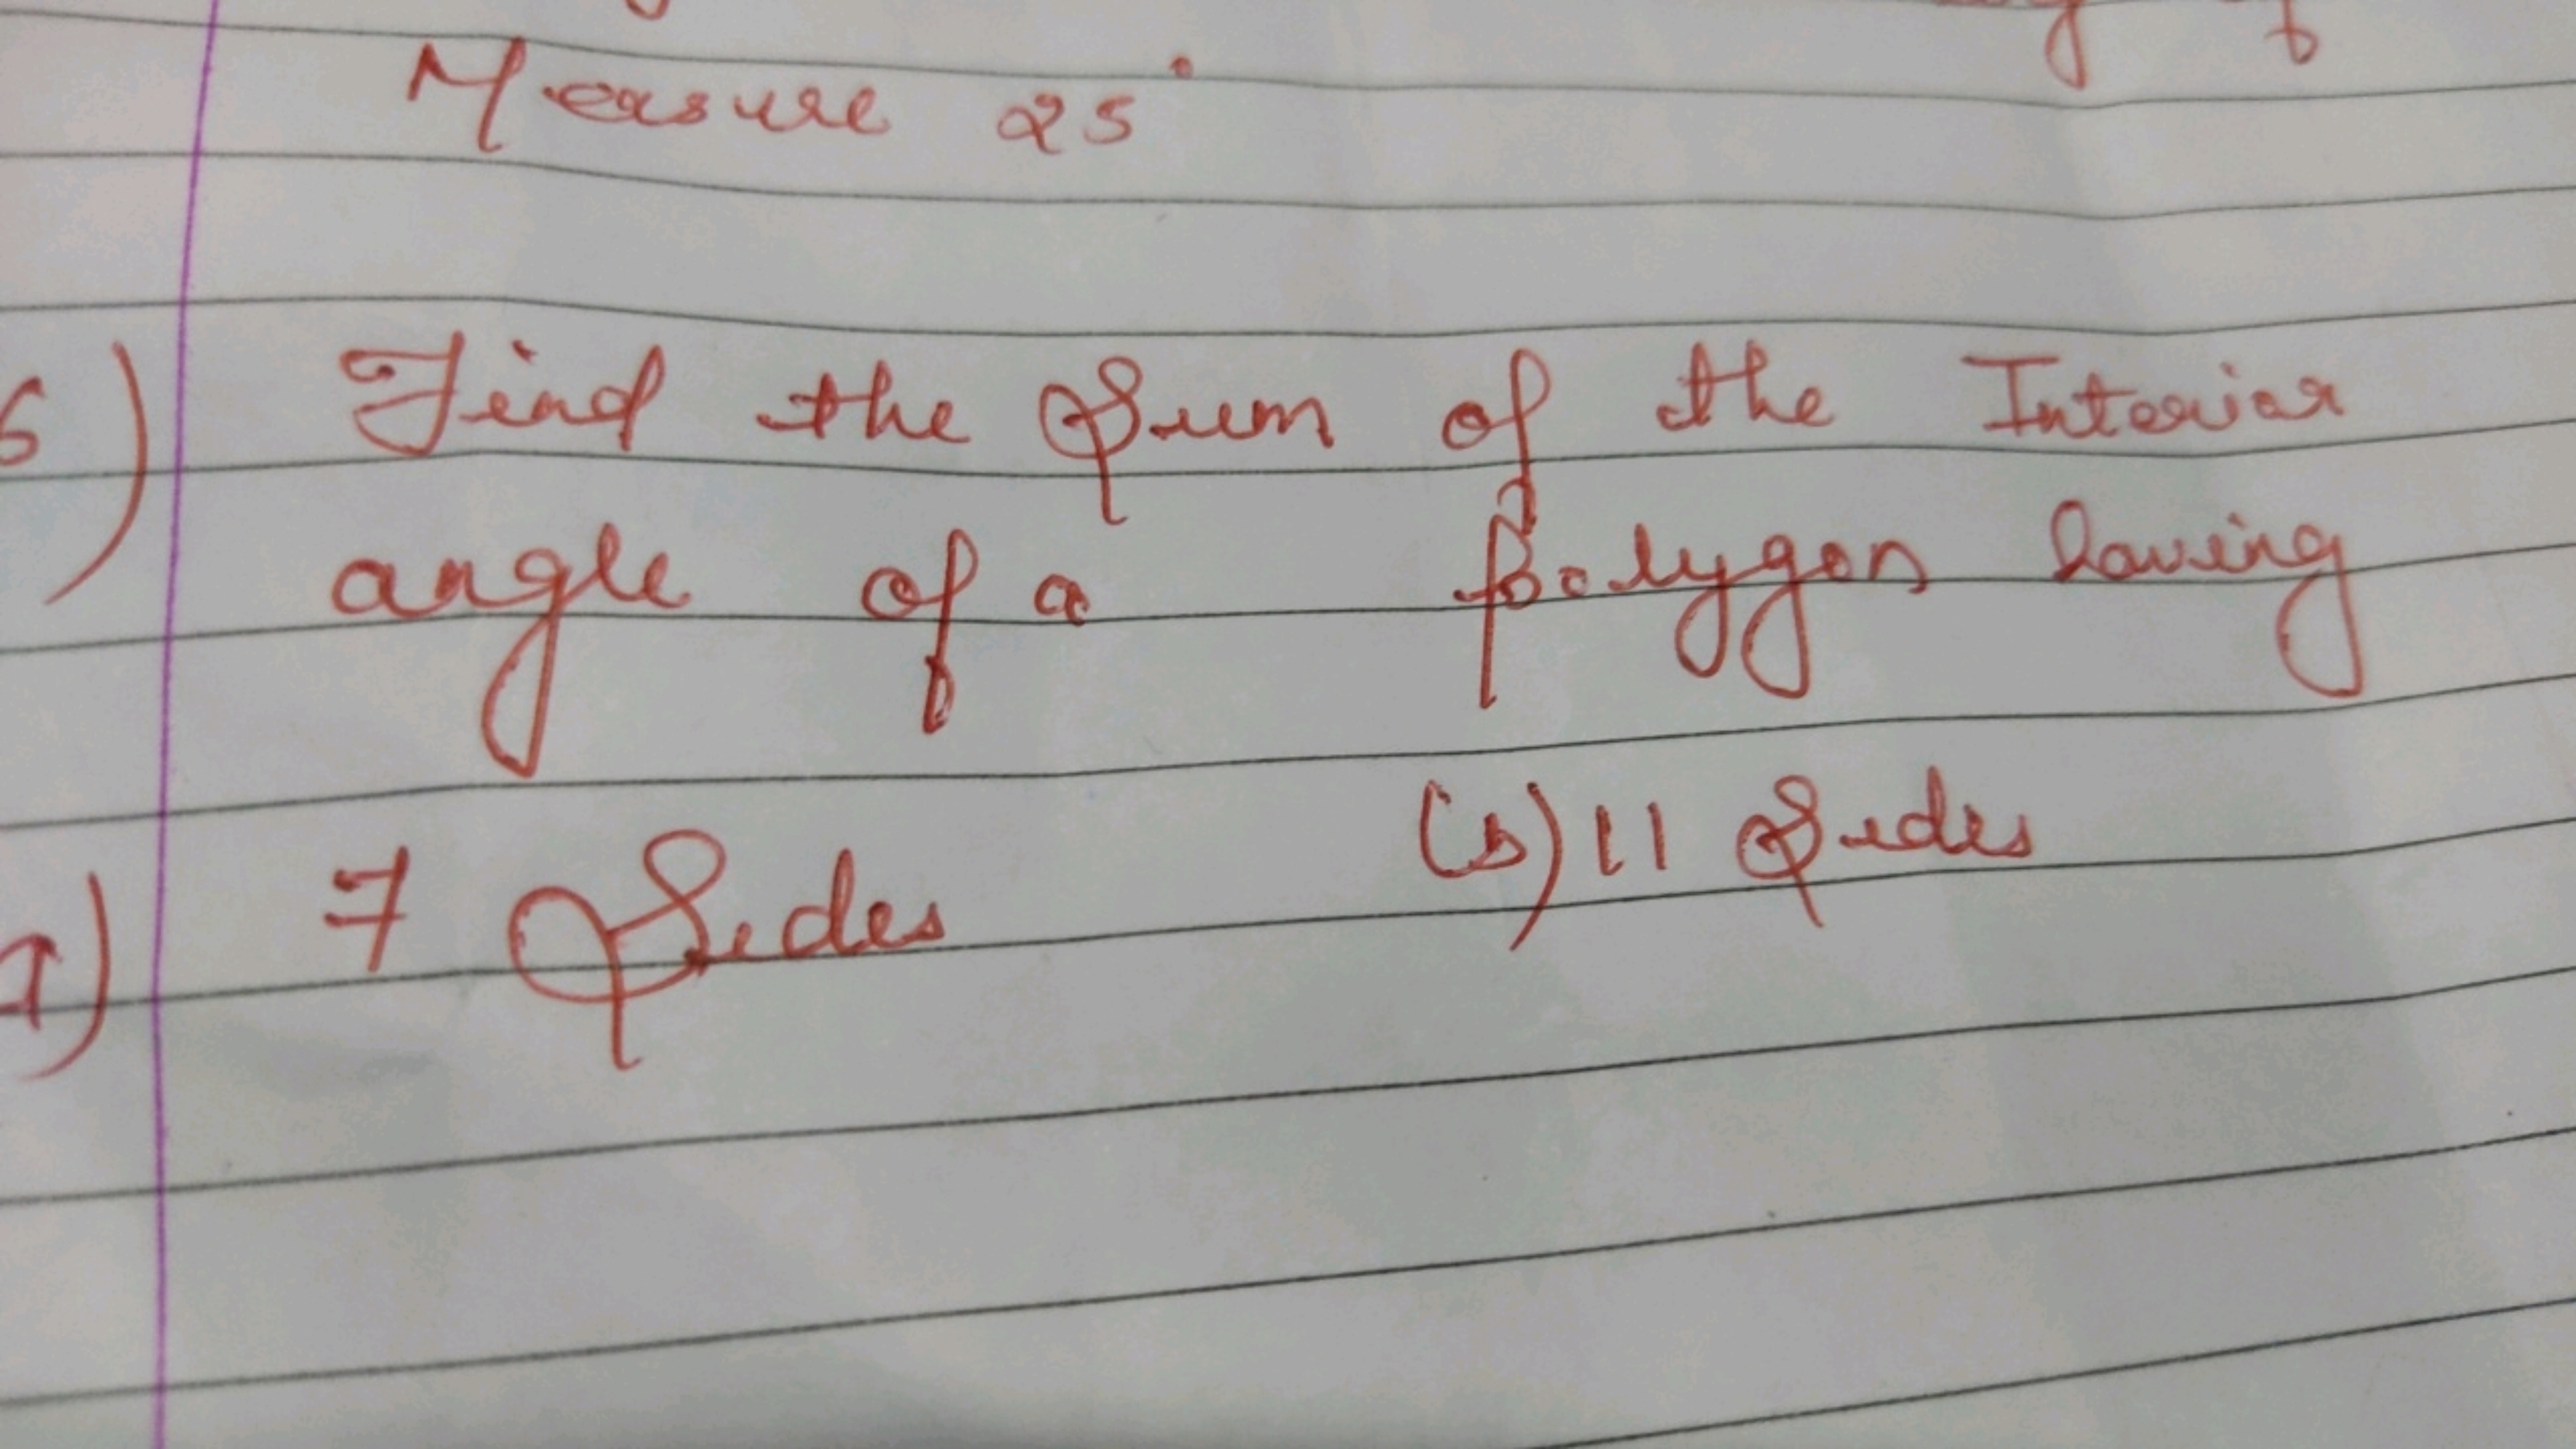 Measure 25°
6) Find the Sum of the Interior
angle of a polygon having
a) 7 Sides (b) 11 Sides